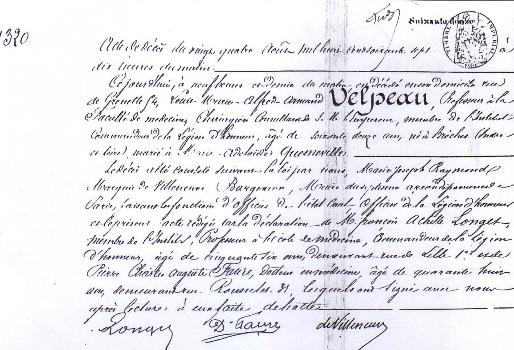 1320
Acte de décès du vingt quatre Août mil huit cent soixante sept à
dix heures du matin.
Cejourd'hui, à neuf heures et demie du matin, est décédé en son domicile rue
de Grenelle Louis Marie Alfred Armand Velpeau, Professeur à la
Faculté de médecine, Chirurgien Consultant de S. M. l'Empereur, membre de l'Institut
Commandeur de la Légion d'honneur, âgé de soixante douze ans, né à Brèches Indre
et loire, marié à Marie Adelaïde
Le décès a été constaté suivant la loi par nous, Marie Joseph Raymond
Marquis de Villeneuve Bargemon, Maire du septième arrondissement de
Paris, faisant les fonctions d'Officier de l'état Civil Officier de la Légion d'honneur
et le présent acte rédigé sur la déclaration de M. François Achille Longet
membre de l'Institut, Professeur à l'école de médecine, Commandeur de la Légion
d'honneur, âgé de cinquante six ans, demeurant rue de Lille et de
Pierre Charles Auguste Faure, docteur en médecine, âgé de quarante huit
ans, demeurant rue Rousselet 31, lesquels ont signé avec nous
après lecture à eux faite
Longet Dr Faure de Villeneuve